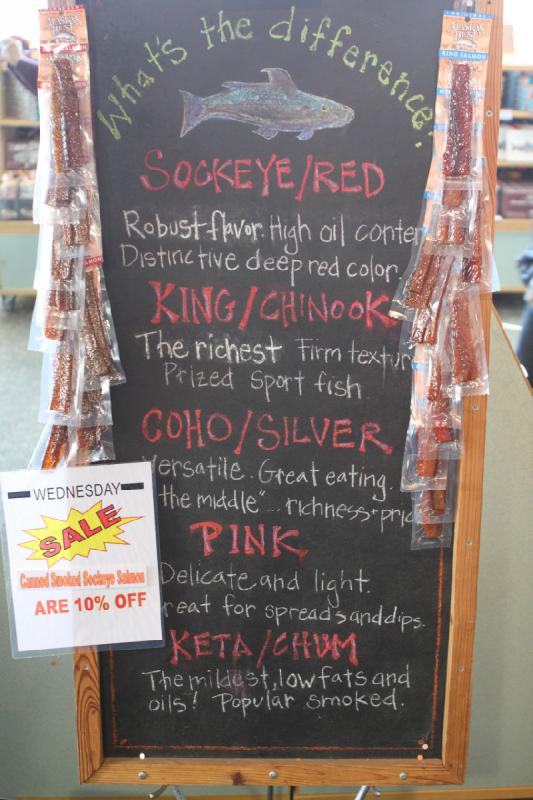 What's the difference?
SOCKEYE/RED
Robust flavor. High oil conten
Distinctive deep red color.
KING/CHINOOK
The richest Firm textur
Prized Sport fish
COHO/SILVER
Versatile. Great eating.
the middle"... richness+pric
PINK
Delicate and light.
reat for spreads and dips.
KETA/CHUM
The mildest, low fats and
oils! Popular smoked.
WEDNESDAY
SALE
Canned Smoked Sockeye Salmon
ARE 10% OFF
KING SALMON